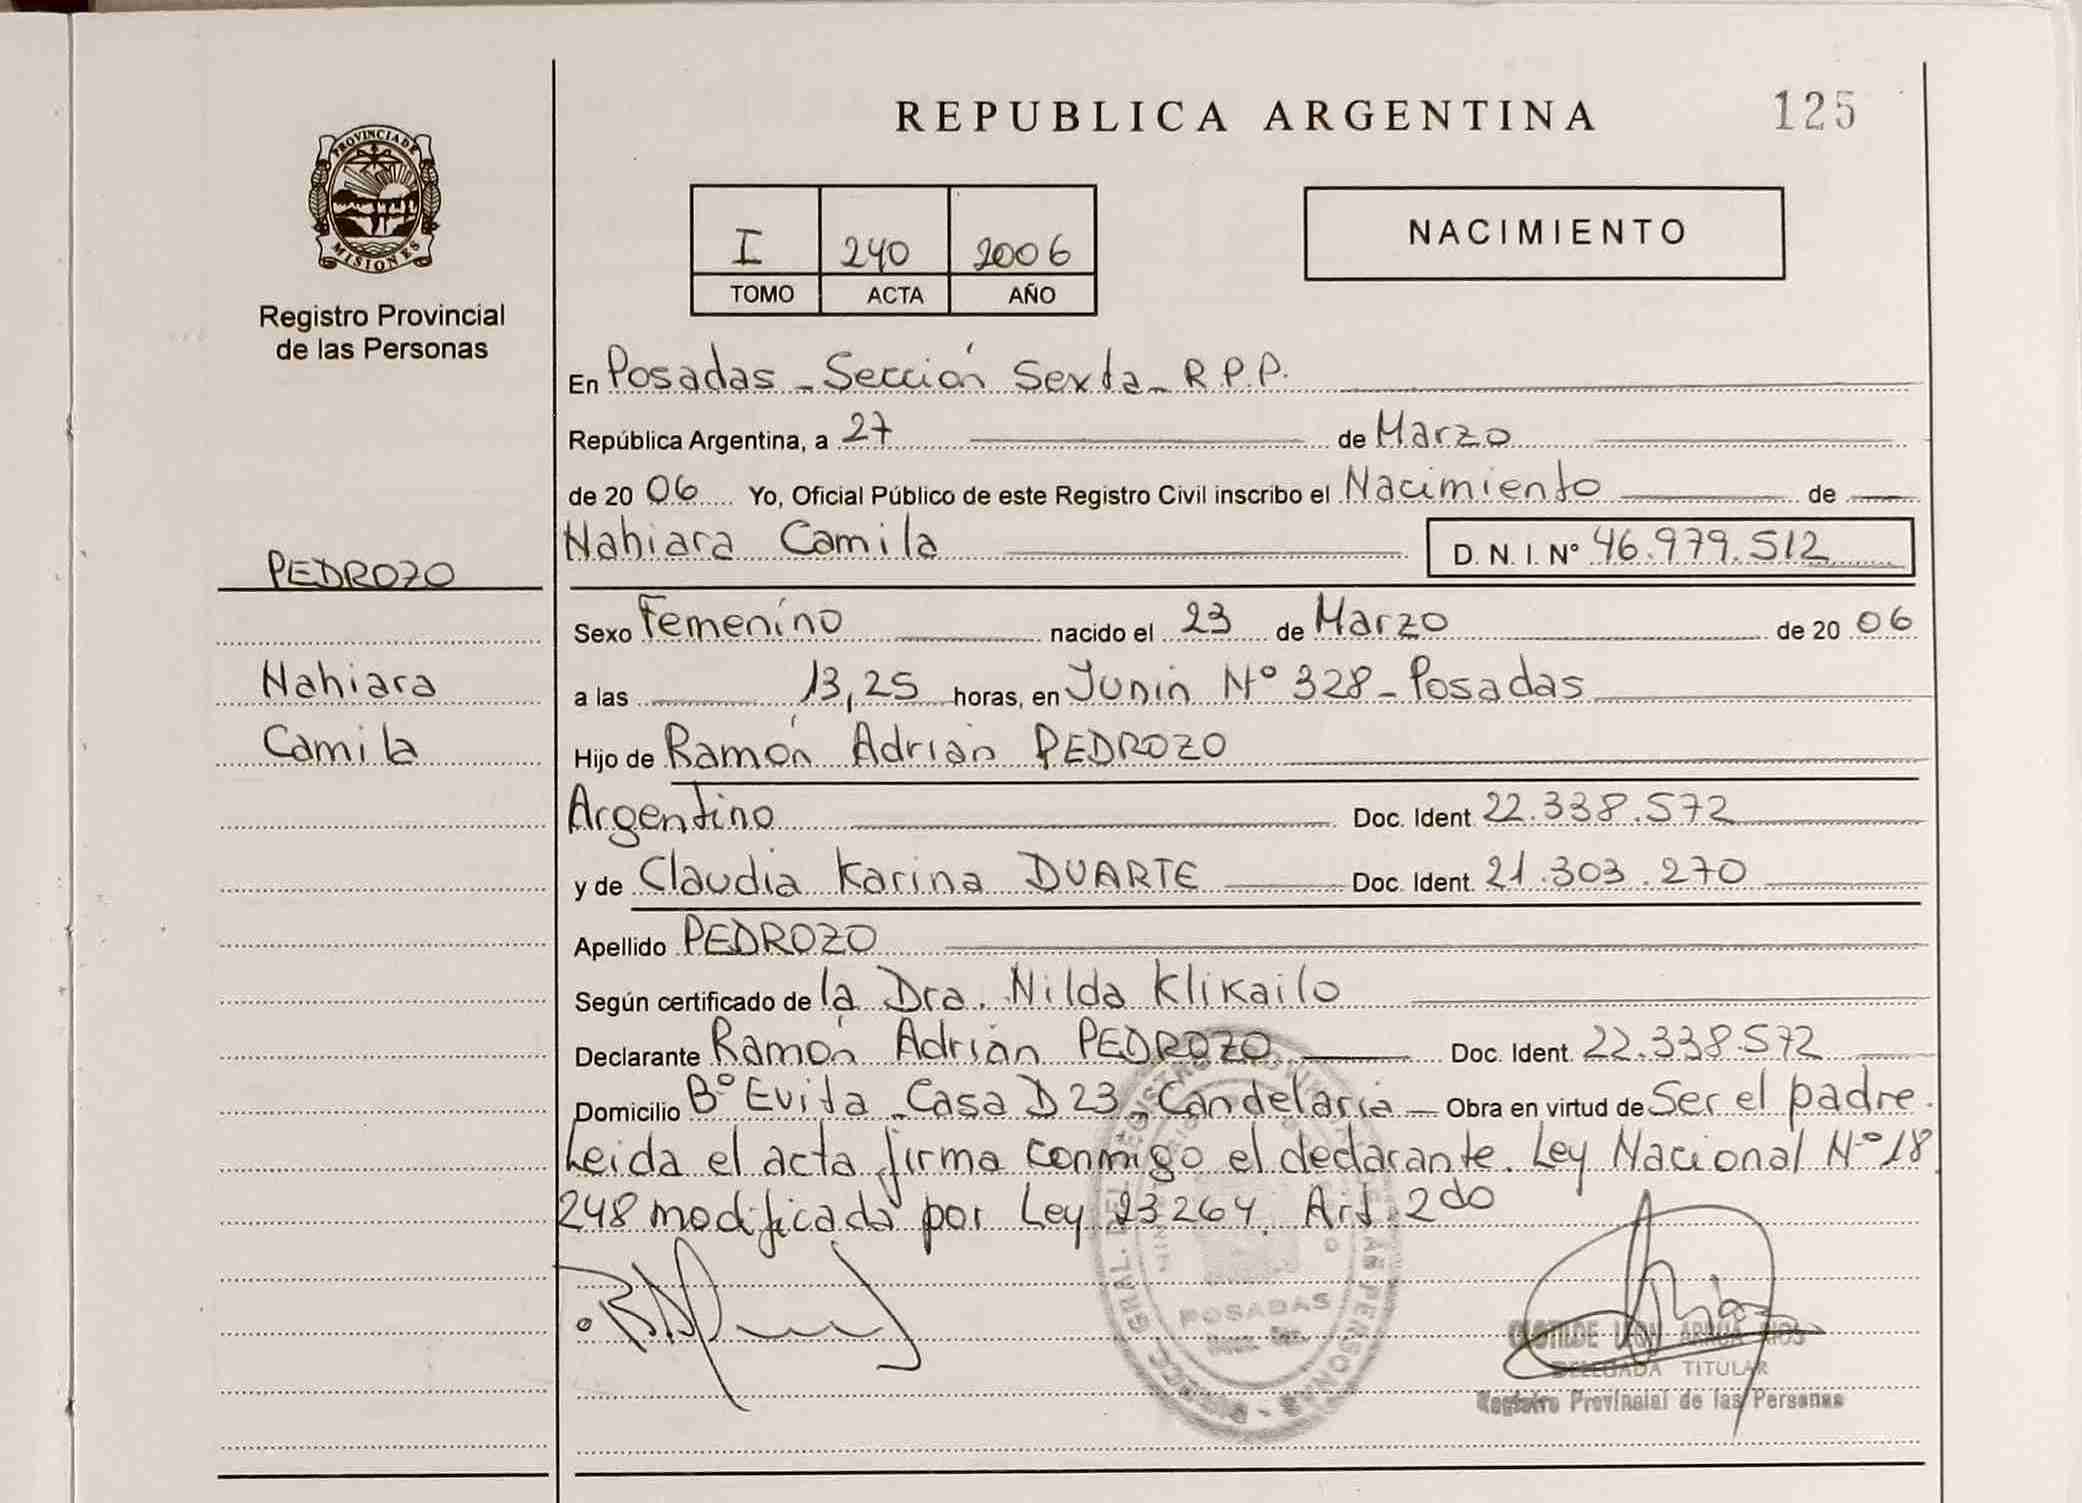 REPUBLICA ARGENTINA
125
PROVINCIA DE
MISIONES
Registro Provincial
de las Personas
I 240 2006
TOMO ACTA AÑO
NACIMIENTO
En Posadas - Sección Sexta - R.P.P.
República Argentina, a 27 de Marzo
de 2006 Yo, Oficial Público de este Registro Civil inscribo el Nacimiento de
Nahiara Camila D. N. I. N° 46.979.512
PEDROZO
Nahiara
Camila
Sexo Femenino nacido el 23 de Marzo de 2006
a las 13,25 horas, en Junin N° 328 - Posadas
Hijo de Ramón Adrián PEDROZO
Argentino Doc. Ident. 22.338.572
y de Claudia Karina DUARTE Doc. Ident. 21.303.270
Apellido PEDROZO
Según certificado de la Dra. Nilda Klikailo
Declarante Ramón Adrián PEDROZO Doc. Ident. 22.338.572
Domicilio B° Evita - Casa D 23 - Candelaria - Obra en virtud de Ser el padre.
Leida el acta firma conmigo el declarante. Ley Nacional N° 18.
248 modificada por Ley 23264. Art. 2do
POSADAS
CLOTILDE LEON ARRUA RIOS
DELEGADA TITULAR
Registro Provincial de las Personas